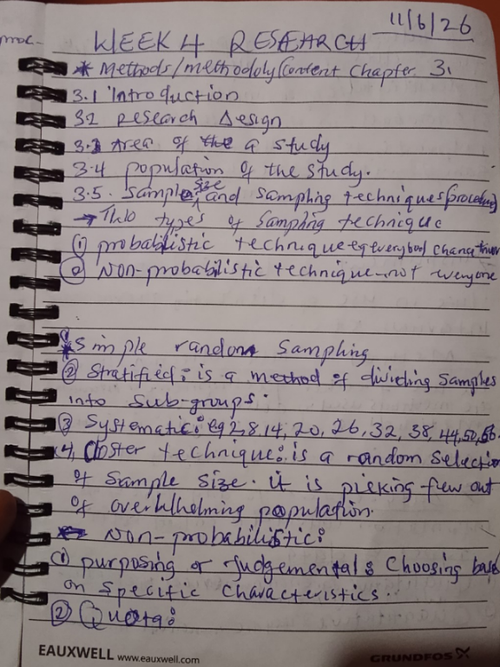 11/6/26
WEEK 4 RESEARCH
* Methods/methodoly/Content Chapter 3.
3.1 Introduction
3.2 Research Design
3.3 Area of the a study
3.4 population of the study.
3.5. sample size and sampling techniques/procedure
→ Two types of Sampling technique
① probabilistic technique → everybody
② Non-probabilistic technique - not everyone
* Simple random Sampling
② Stratified: is a method of dividing samples
into Sub-groups.
③ Systematic: eg 2,8,14, 20, 26, 32, 38, 44,50,56
(4) Closter technique: is a random Selection
of Sample Size. it is picking few out
of overwhelming population.
Non-probabilistic:
① purposing or Judgemental: Choosing base
on Specific Characteristics.
② Quota:
EAUXWELL www.eauxwell.com GRUNDFOS